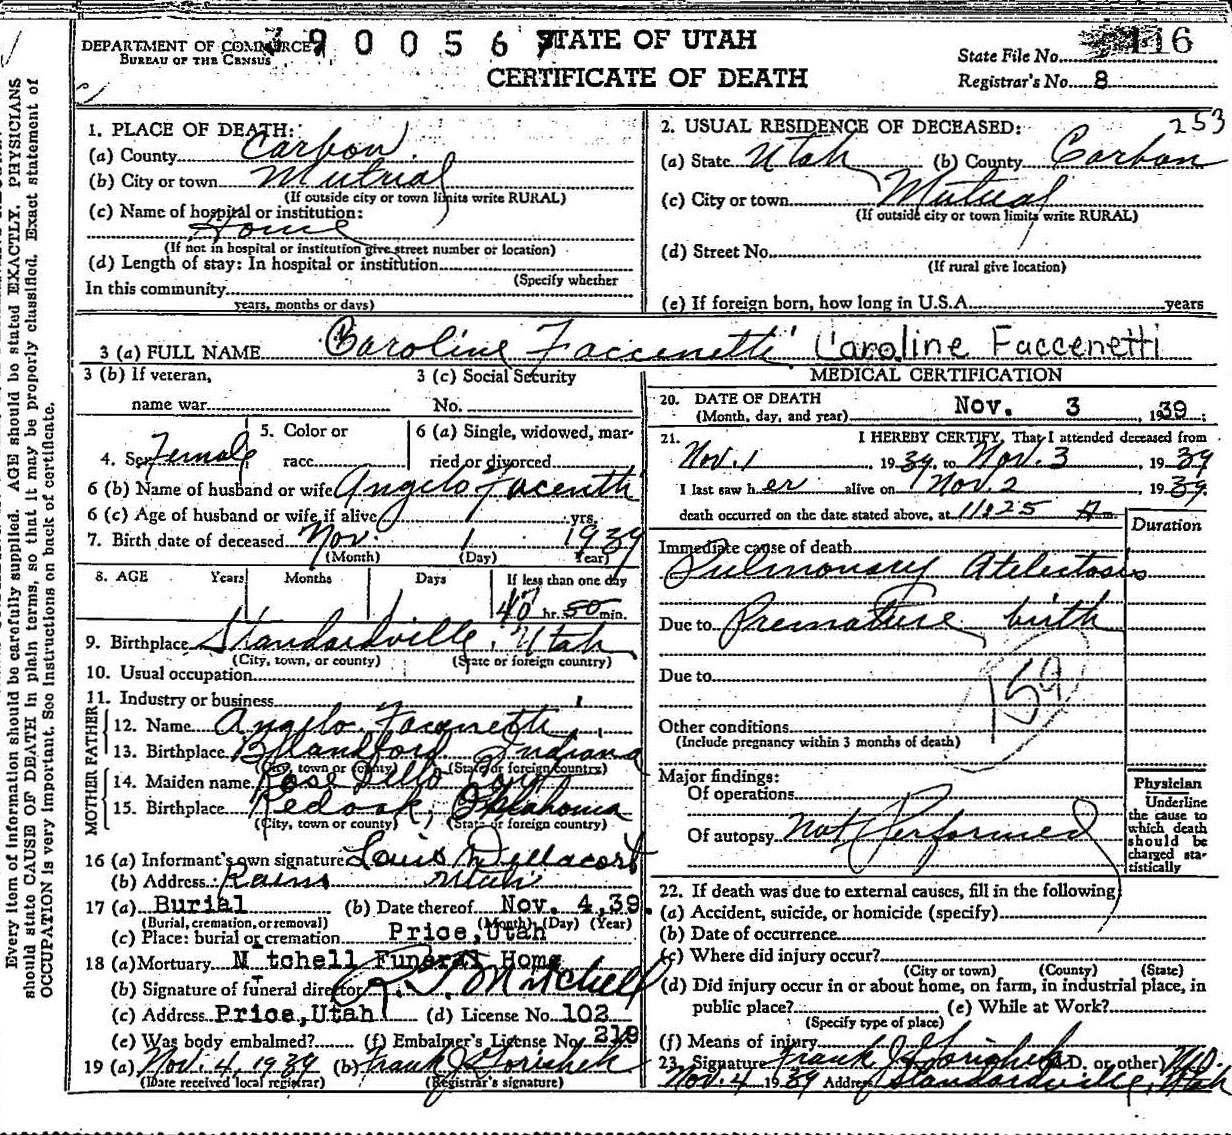 DEPARTMENT OF COMMERCE
BUREAU OF THE CENSUS
390056
STATE OF UTAH
CERTIFICATE OF DEATH
State File No. 116
Registrar's No. 8
Every item of information should be carefully supplied. AGE should be stated EXACTLY. PHYSICIANS
should state CAUSE OF DEATH in plain terms, so that it may be properly classified. Exact statement of
OCCUPATION is very important. See instructions on back of certificate.
1. PLACE OF DEATH:
(a) County Carbon
(b) City or town Mutual
(If outside city or town limits write RURAL)
(c) Name of hospital or institution:
Home
(If not in hospital or institution give street number or location)
(d) Length of stay: In hospital or institution
(Specify whether
In this community
years, months or days)
2. USUAL RESIDENCE OF DECEASED: 253
(a) State Utah (b) County Carbon
(c) City or town Mutual
(If outside city or town limits write RURAL)
(d) Street No.
(If rural give location)
(e) If foreign born, how long in U.S.A. years
3 (a) FULL NAME Caroline Faccenetti Caroline Faccenetti
3 (b) If veteran, 3 (c) Social Security
name war No.
4. Sex Female 5. Color or race 6 (a) Single, widowed, married or divorced
6 (b) Name of husband or wife Angelo Facentti
6 (c) Age of husband or wife if alive yrs.
7. Birth date of deceased Nov. 1 1939
(Month) (Day) Year)
8. AGE Years Months Days If less than one day
40 hr. 50 min.
9. Birthplace Standardville, Utah
(City, town, or county) (State or foreign country)
10. Usual occupation
11. Industry or business
FATHER
12. Name Angelo Facenetti
13. Birthplace Blandford Indiana
(City, town or county) (State or foreign country)
MOTHER
14. Maiden name Rose Dello
15. Birthplace Redoak, Oklahoma
(City, town or county) (State or foreign country)
16 (a) Informant's own signature Louis Dellacort
(b) Address Rains Utah
17 (a) Burial (b) Date thereof Nov. 4, 39.
(Burial, cremation, or removal) (Month) (Day) (Year)
(c) Place: burial or cremation Price, Utah
18 (a) Mortuary Mitchell Funeral Home
(b) Signature of funeral director R. J. Mitchell
(c) Address Price, Utah (d) License No. 102
(e) Was body embalmed? (f) Embalmer's License No. 219
19 (a) Nov. 4, 1939 (b) Frank J. Gorishek
(Date received local registrar) (Registrar's signature)
MEDICAL CERTIFICATION
20. DATE OF DEATH
(Month, day, and year) Nov. 3, 1939;
21. I HEREBY CERTIFY, That I attended deceased from
Nov. 1, 1939, to Nov. 3, 1939
I last saw her alive on Nov 2, 1939.
death occurred on the date stated above, at 11:25 A m.
Duration
Immediate cause of death
Pulmonary Atelectosis
Due to Premature birth
Due to
159
Other conditions
(Include pregnancy within 3 months of death)
Major findings:
Of operations
Of autopsy Not Performed
Physician
Underline
the cause to
which death
should be
charged sta-
tistically
22. If death was due to external causes, fill in the following
(a) Accident, suicide, or homicide (specify)
(b) Date of occurrence
(c) Where did injury occur?
(City or town) (County) (State)
(d) Did injury occur in or about home, on farm, in industrial place, in
public place? (e) While at Work?
(Specify type of place)
(f) Means of injury
23. Signature Frank J. Gorishek (M.D. or other) M.D.
Nov. 4 1939 Address Standardville, Utah